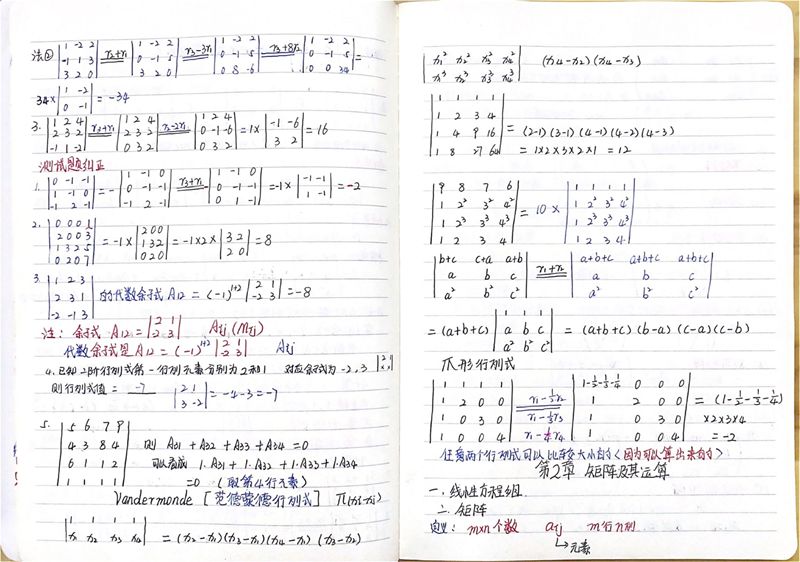 法② |1 -2 2; -1 1 3; 3 2 0| r2+r1 |1 -2 2; 0 -1 5; 3 2 0| r3-3r1 |1 -2 2; 0 -1 5; 0 8 -6| r3+8r2 |1 -2 2; 0 -1 5; 0 0 34| =
34× |1 -2; 0 -1| = -34
3. |1 2 4; 2 3 2; -1 1 -2| r3+r1 |1 2 4; 2 3 2; 0 3 2| r2-2r1 |1 2 4; 0 -1 -6; 0 3 2| = 1× |-1 -6; 3 2| = 16
测试题纠正
1. |0 -1 -1; 1 -1 0; -1 2 -1| = - |1 -1 0; 0 -1 -1; -1 2 -1| r3+r1 - |1 -1 0; 0 -1 -1; 0 1 -1| = -1× |-1 -1; 1 -1| = -2
2. |0 0 0 1; 2 0 0 3; 1 3 2 5; 0 2 0 7| = -1× |2 0 0; 1 3 2; 0 2 0| = -1×2× |3 2; 2 0| = 8
3. |1 2 3; 2 3 1; -2 -1 3| 的代数余子式 A12 = (-1)^1+2 |2 1; -2 3| = -8
注: 余子式 A12 = |2 1; -2 3| Aij (Mij)
代数余子式是 A12 = (-1)^1+2 |2 1; -2 3| Aij
4. 已知2阶行列式第一行元素分别为2和1 对应余子式为-2, 3
则行列式值 = -7 |2 1; 3 -2| = -4-3 = -7
5. |5 6 7 8; 4 3 8 4; 6 1 1 2; 1 1 1 1| 则 A31 + A32 + A33 + A34 = 0
可以看成 1·A31 + 1·A32 + 1·A33 + 1·A34
=0 (取第4行元素)
Vandermonde [范德蒙德行列式] Π(xi-xj)
|1 1 1 1; x1 x2 x3 x4| = (x2-x1)(x3-x1)(x4-x1) (x3-x2)
|x1² x2² x3² x4²; x1³ x2³ x3³ x4³| (x4-x2)(x4-x3)
|1 1 1 1; 1 2 3 4; 1 4 9 16; 1 8 27 64| = (2-1)(3-1)(4-1)(4-2)(4-3)
= 1×2×3×2×1 = 12
|9 8 7 6; 1 2² 3² 4²; 1 2³ 3³ 4³; 1 2 3 4| = 10× |1 1 1 1; 1 2² 3² 4²; 1 2³ 3³ 4³; 1 2 3 4|
|b+c c+a a+b; a b c; a² b² c²| r1+r2 |a+b+c a+b+c a+b+c; a b c; a² b² c²|
= (a+b+c) |1 1 1; a b c; a² b² c²| = (a+b+c)(b-a)(c-a)(c-b)
爪形行列式
|1 1 1 1; 1 2 0 0; 1 0 3 0; 1 0 0 4| r1-½r2 r1-⅓r3 r1-¼r4 |1-½-⅓-¼ 0 0 0; 1 2 0 0; 1 0 3 0; 1 0 0 4| = (1-½-⅓-¼)
×2×3×4
= -2
任意两个行列式可以比较大小的 (因为可以算出来的)
第2章 矩阵及其运算
一. 线性方程组
二. 矩阵
定义: m×n 个数 aij m行n列
↳元素